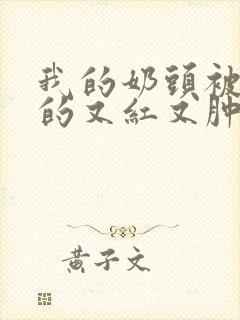 我的奶頭被
的又紅又肿
黃子文